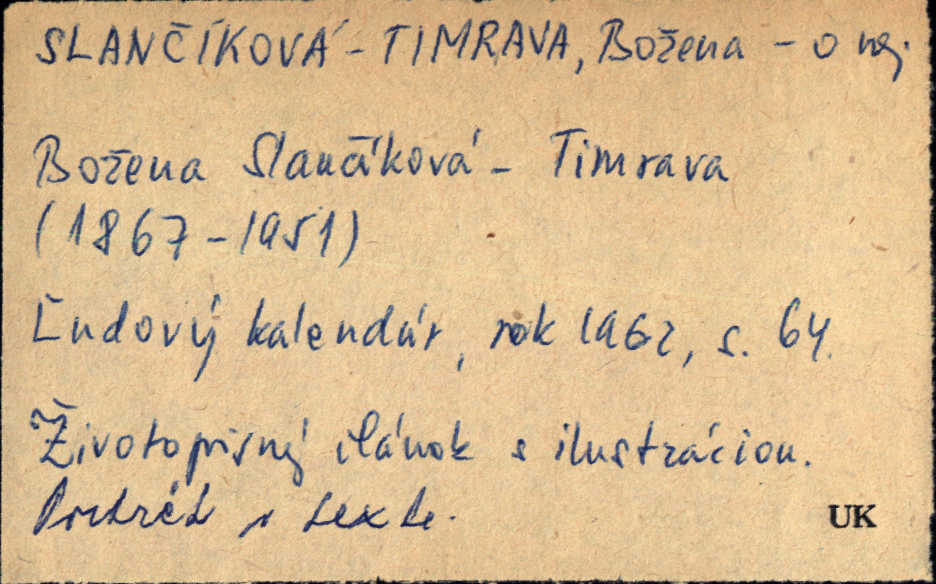 SLANČÍKOVÁ - TIMRAVA, Božena - o nej.
Božena Slančíková - Timrava
(1867 - 1951)
Ľudový kalendár, rok 1962, s. 64.
Životopisný článok s ilustráciou.
Portrét v texte.
UK